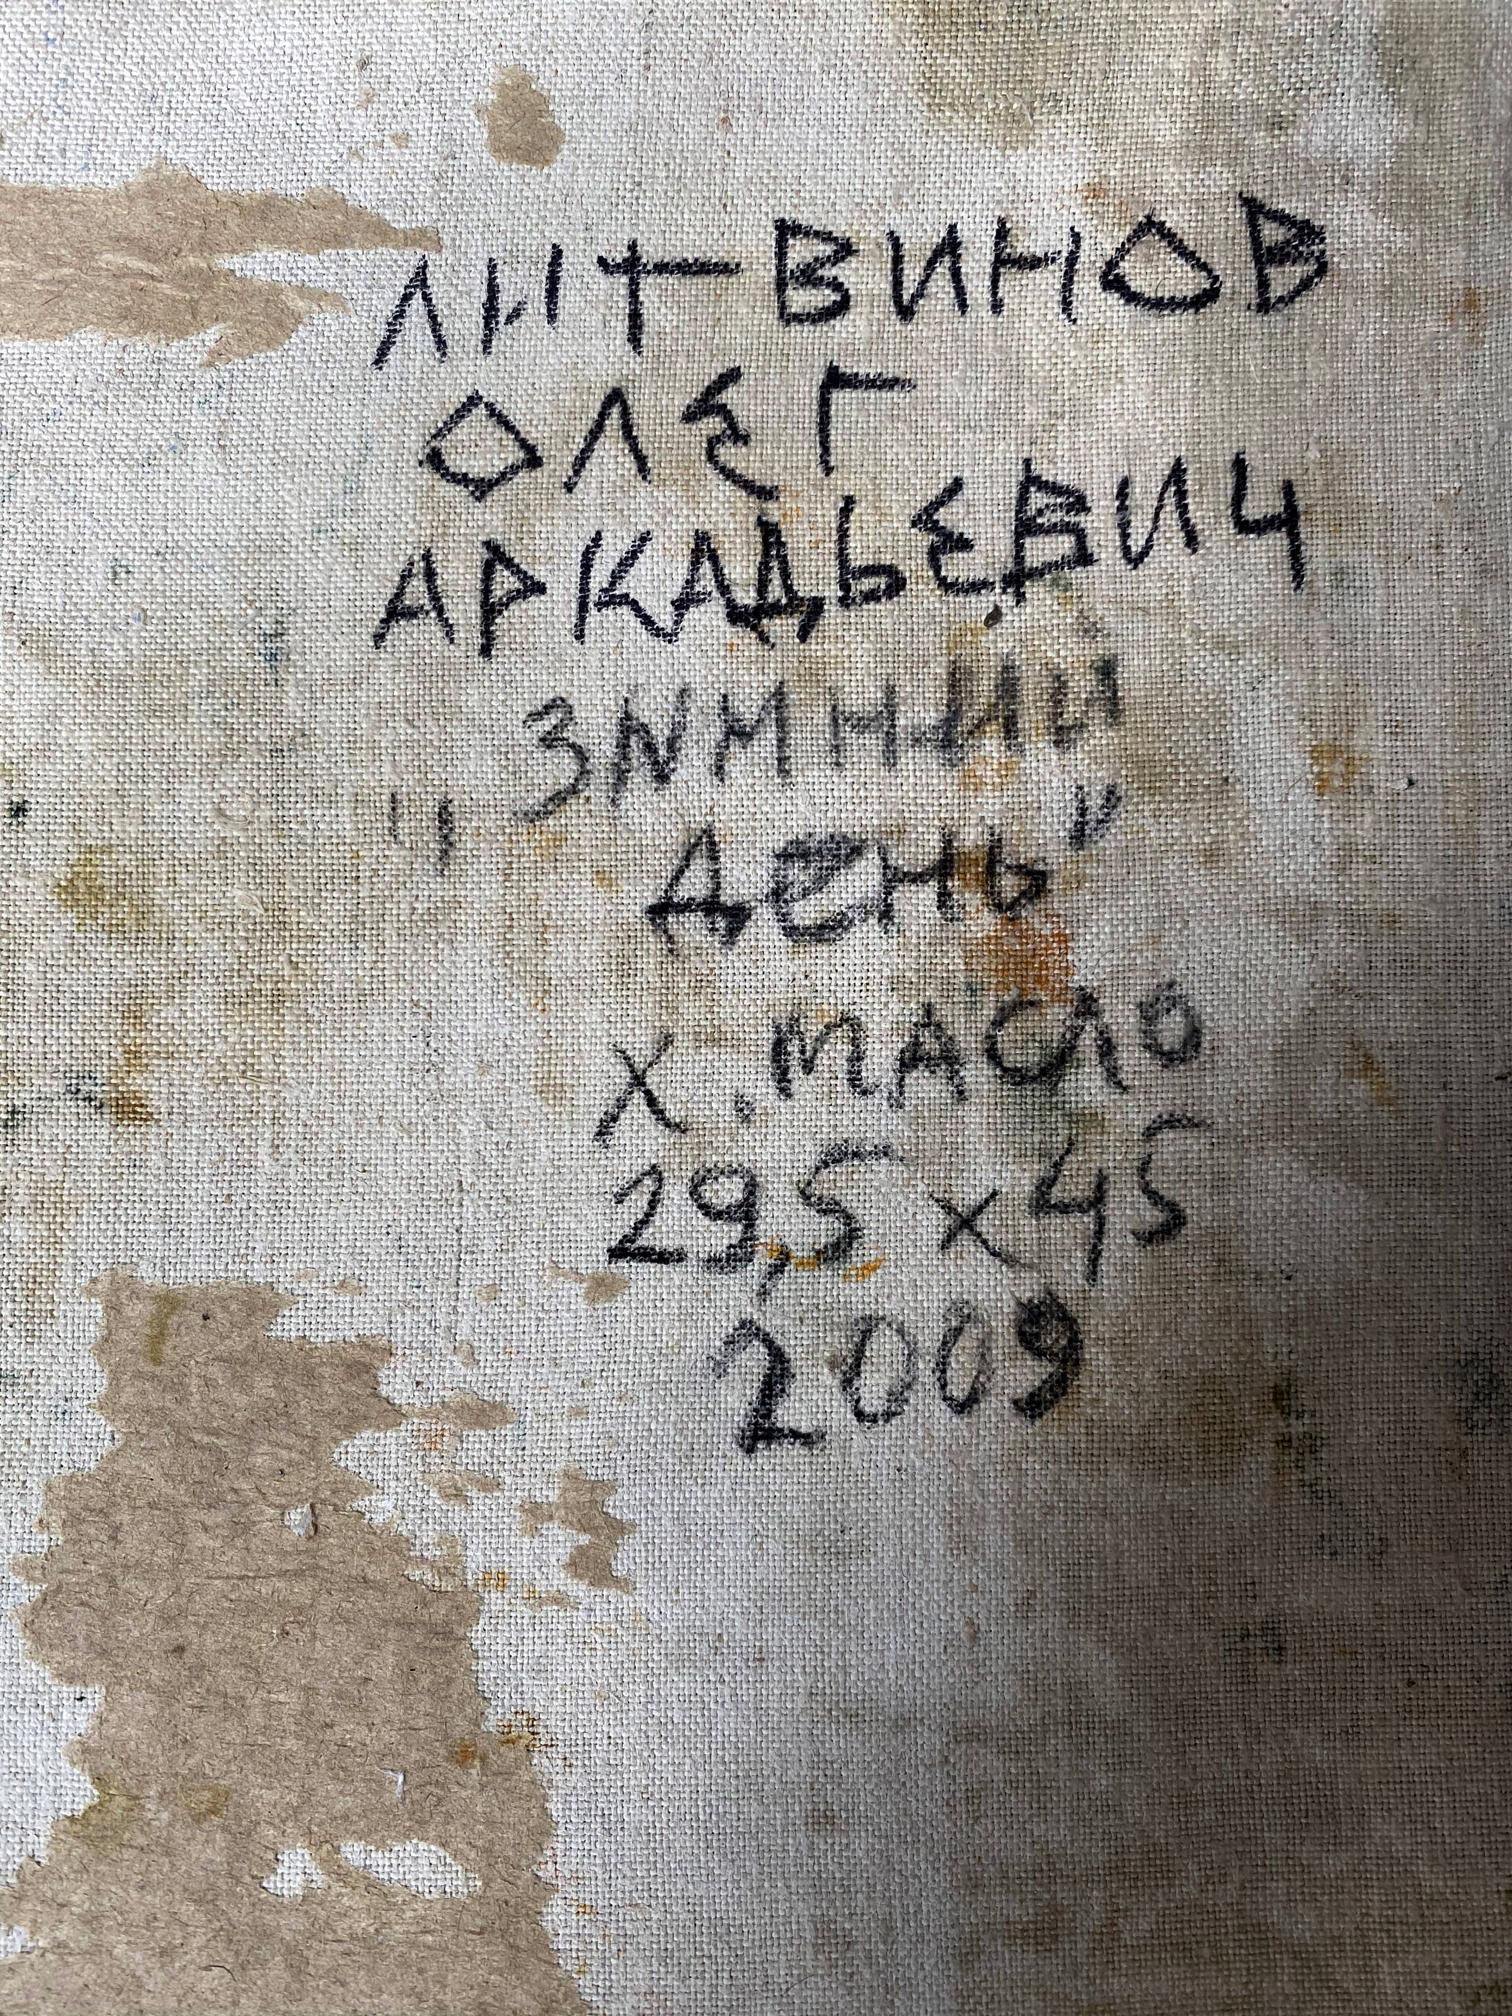 ЛИТВИНОВ
ОЛЕГ
АРКАДЬЕВИЧ
„ЗИМНИЙ
ДЕНЬ”
Х. МАСЛО
29,5 х 45
2009